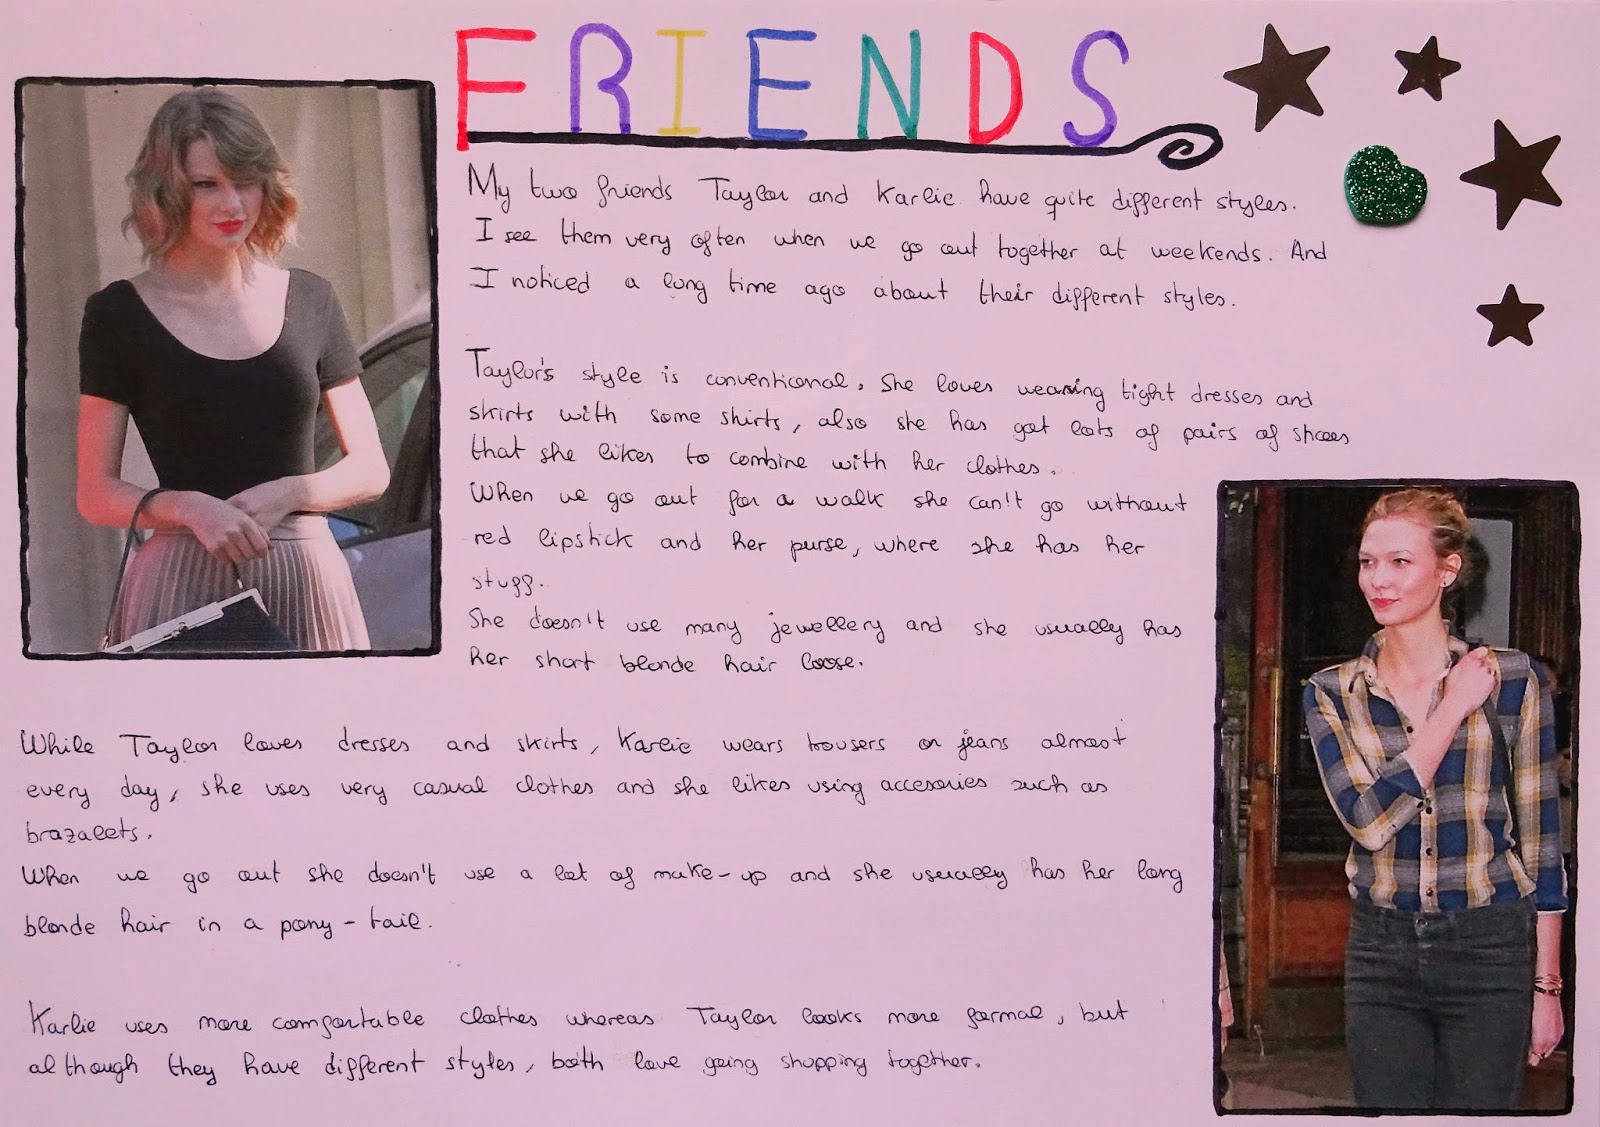 FRIENDS
My two friends Taylor and Karlie have quite different styles.
I see them very often when we go out together at weekends. And
I noticed a long time ago about their different styles.
Taylor's style is conventional. She loves wearing tight dresses and
skirts with some shirts, also she has got lots of pairs of shoes
that she likes to combine with her clothes.
When we go out for a walk she can't go without
red lipstick and her purse, where she has her
stuff.
She doesn't use many jewellery and she usually has
her short blonde hair loose.
While Taylor loves dresses and skirts, Karlie wears trousers or jeans almost
every day, she uses very casual clothes and she likes using accesories such as
brazalets.
When we go out she doesn't use a lot of make-up and she usually has her long
blonde hair in a pony-tail.
Karlie uses more comfortable clothes whereas Taylor looks more formal, but
although they have different styles, both love going shopping together.